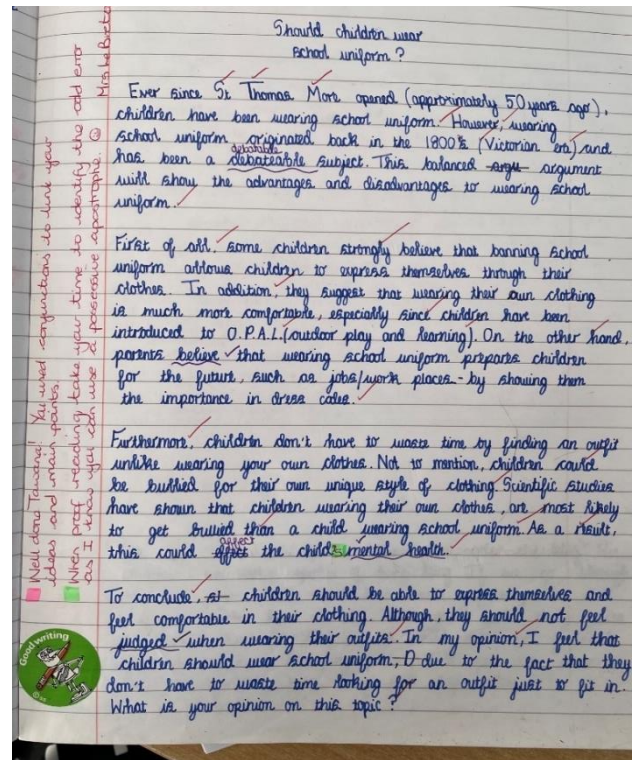 Should children wear
school uniform?
Ever since St Thomas More opened (approximately 50 years ago),
children have been wearing school uniform. However, wearing
school uniform originated back in the 1800's (Victorian era) and
debatable
has been a debateable subject. This balanced argu argument
will show the advantages and disadvantages to wearing school
uniform.
First of all, some children strongly believe that banning school
uniform allows children to express themselves through their
clothes. In addition, they suggest that wearing their own clothing
is much more comfortable, especially since children have been
introduced to O.P.A.L. (outdoor play and learning). On the other hand,
parents believe that wearing school uniform prepares children
for the future, such as jobs/work places - by showing them
the importance in dress codes.
Furthermore, children don't have to waste time by finding an outfit
unlike wearing your own clothes. Not to mention, children could
be bullied for their own unique style of clothing. Scientific studies
have shown that children wearing their own clothes, are most likely
to get bullied than a child wearing school uniform. As a result,
affect
this could effect the childs mental health.
To conclude, children should be able to express themselves and
feel comfortable in their clothing. Although, they should not feel
judged when wearing their outfits. In my opinion, I feel that
children should wear school uniform, D due to the fact that they
don't have to waste time looking for an outfit just to fit in.
What is your opinion on this topic?
Well done! You used conjunctions to link your
ideas and main points.
When proof reading take your time to identify the odd error
as I know you can use a possessive apostrophe.
Good writing